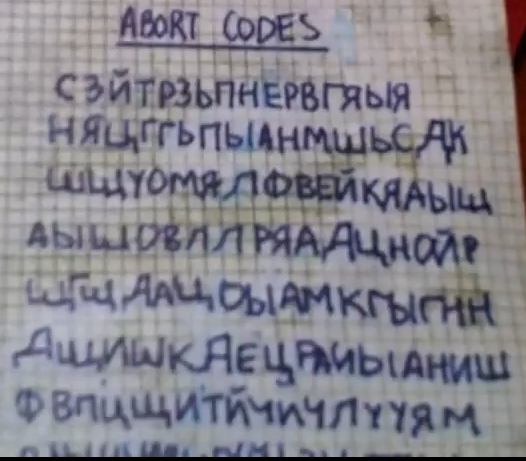 ABORT CODES
СЗЙТРЗЬПНЕРВГЯЫЯ
НЯЦГГЬПЫАНМШЬСДК
ШЩУОМЯЛФВЕЙКЯАЫЩ
АЫШОВЛЛРЯАДЦНОЙР
ЩГЩДАЦОЫАМКГЫГНН
ДЩИШКДЕЦРАИЫАНИШ
ФВПЦЩИТЙЧИЧЛУУЯМ